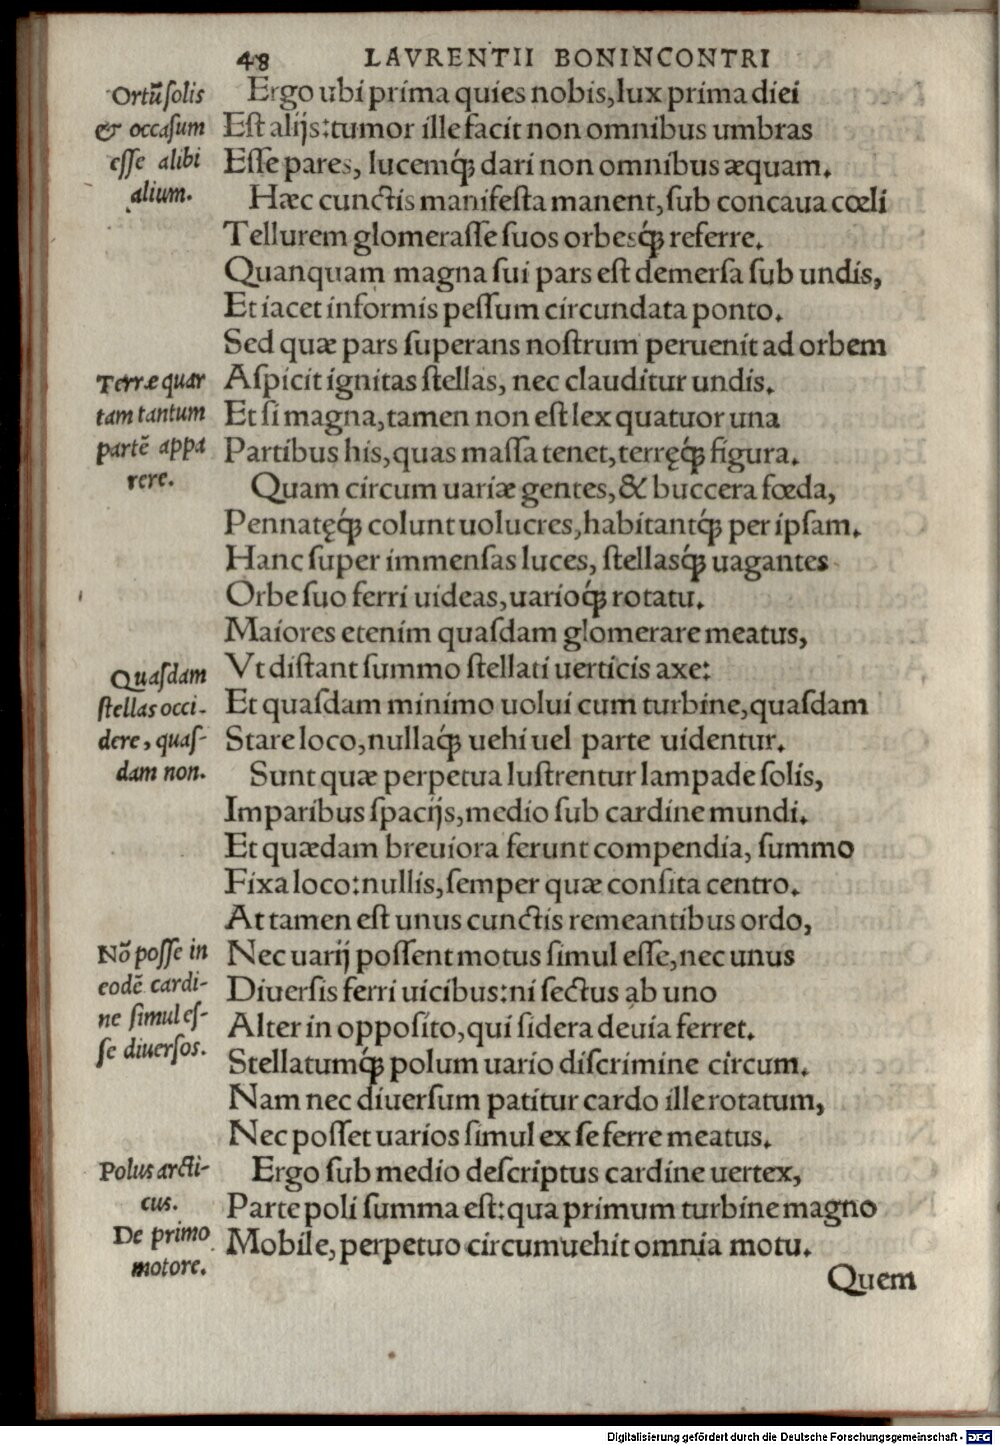 48 LAVRENTII BONINCONTRI
Ortū ſolis
& occaſum
eſſe alibi
alium.
Ergo ubi prima quies nobis, lux prima diei
Eſt alijs: tumor ille facit non omnibus umbras
Eſſe pares, lucemq́; dari non omnibus æquam.
Hæc cunctis manifeſta manent, ſub concaua cœli
Tellurem glomeraſſe ſuos orbesq́; referre.
Quanquam magna ſui pars eſt demerſa ſub undis,
Et iacet informis peſſum circundata ponto.
Sed quæ pars ſuperans noſtrum peruenit ad orbem
Terræ quar
tam tantum
partē appa
rere.
Aſpicit ignitas ſtellas, nec clauditur undis.
Et ſi magna, tamen non eſt lex quatuor una
Partibus his, quas maſſa tenet, terręq́; figura.
Quam circum uariæ gentes, & buccera fœda,
Pennatęq́; colunt uolucres, habitantq́; per ipſam.
Hanc ſuper immenſas luces, ſtellasq́; uagantes
Orbe ſuo ferri uideas, uarioq́; rotatu.
Maiores etenim quaſdam glomerare meatus,
Quaſdam
ſtellas occi-
dere, quaſ-
dam non.
Vt diſtant ſummo ſtellati uerticis axe:
Et quaſdam minimo uolui cum turbine, quaſdam
Stare loco, nullaq́; uehi uel parte uidentur.
Sunt quæ perpetua luſtrentur lampade ſolis,
Imparibus ſpacijs, medio ſub cardine mundi.
Et quædam breuiora ferunt compendia, ſummo
Fixa loco: nullis, ſemper quæ conſita centro.
At tamen eſt unus cunctis remeantibus ordo,
Nō poſſe in
eodē cardi-
ne ſimul eſ-
ſe diuerſos.
Nec uarij poſſent motus ſimul eſſe, nec unus
Diuerſis ferri uicibus: ni ſectus ab uno
Alter in oppoſito, qui ſidera deuia ferret.
Stellatumq́; polum uario diſcrimine circum.
Nam nec diuerſum patitur cardo ille rotatum,
Nec poſſet uarios ſimul ex ſe ferre meatus.
Polus arcti-
cus.
De primo
motore.
Ergo ſub medio deſcriptus cardine uertex,
Parte poli ſumma eſt: qua primum turbine magno
Mobile, perpetuo circumuehit omnia motu.
Quem
Digitalisierung gefördert durch die Deutsche Forschungsgemeinschaft - DFG